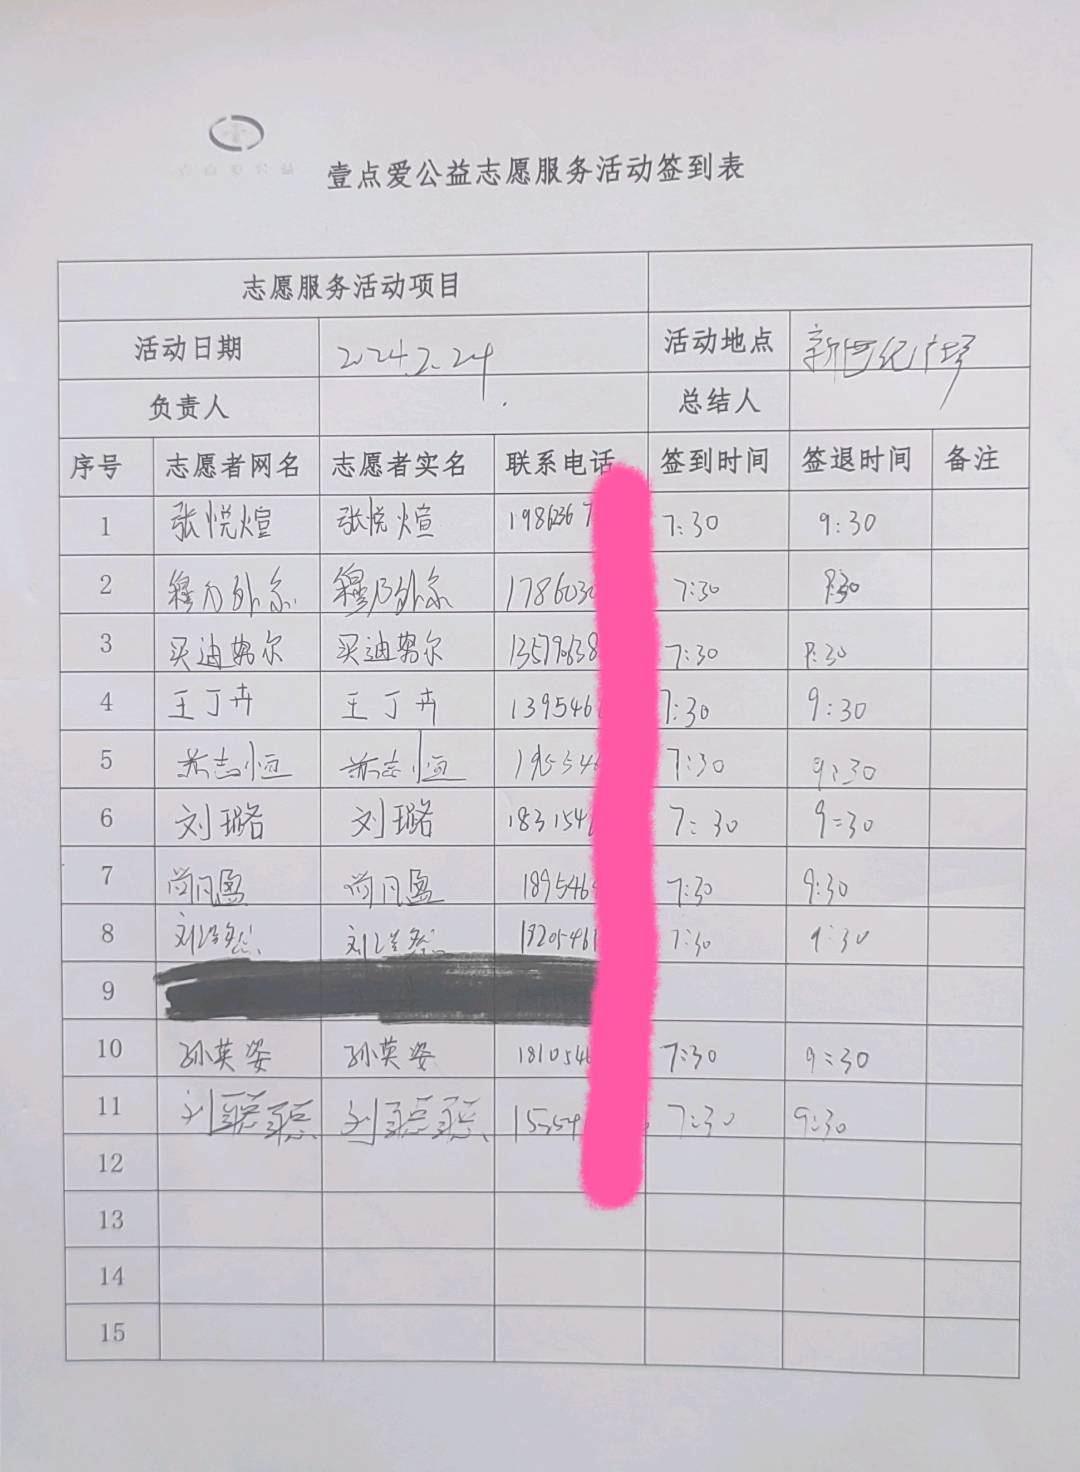 壹点爱公益志愿服务活动签到表
志愿服务活动项目
活动日期 2024.2.24 活动地点 新世纪广场
负责人 总结人
序号 志愿者网名 志愿者实名 联系电话 签到时间 签退时间 备注
1 张悦煊 张悦煊 1986236 7:30 9:30
2 穆乃外尔 穆乃外尔 1786030 7:30 9:30
3 买迪努尔 买迪努尔 13579638 7:30 9:30
4 王丁卉 王丁卉 1395461 7:30 9:30
5 志恒 志恒 195546 7:30 9:30
6 刘璐 刘璐 1831546 7:30 9:30
7 尚凡盈 尚凡盈 1895464 7:30 9:30
8 刘 刘 19205461 7:30 9:30
9
10 孙英姿 孙英姿 1810546 7:30 9:30
11 刘聪聪 刘聪聪 15554 7:30 9:30
12
13
14
15